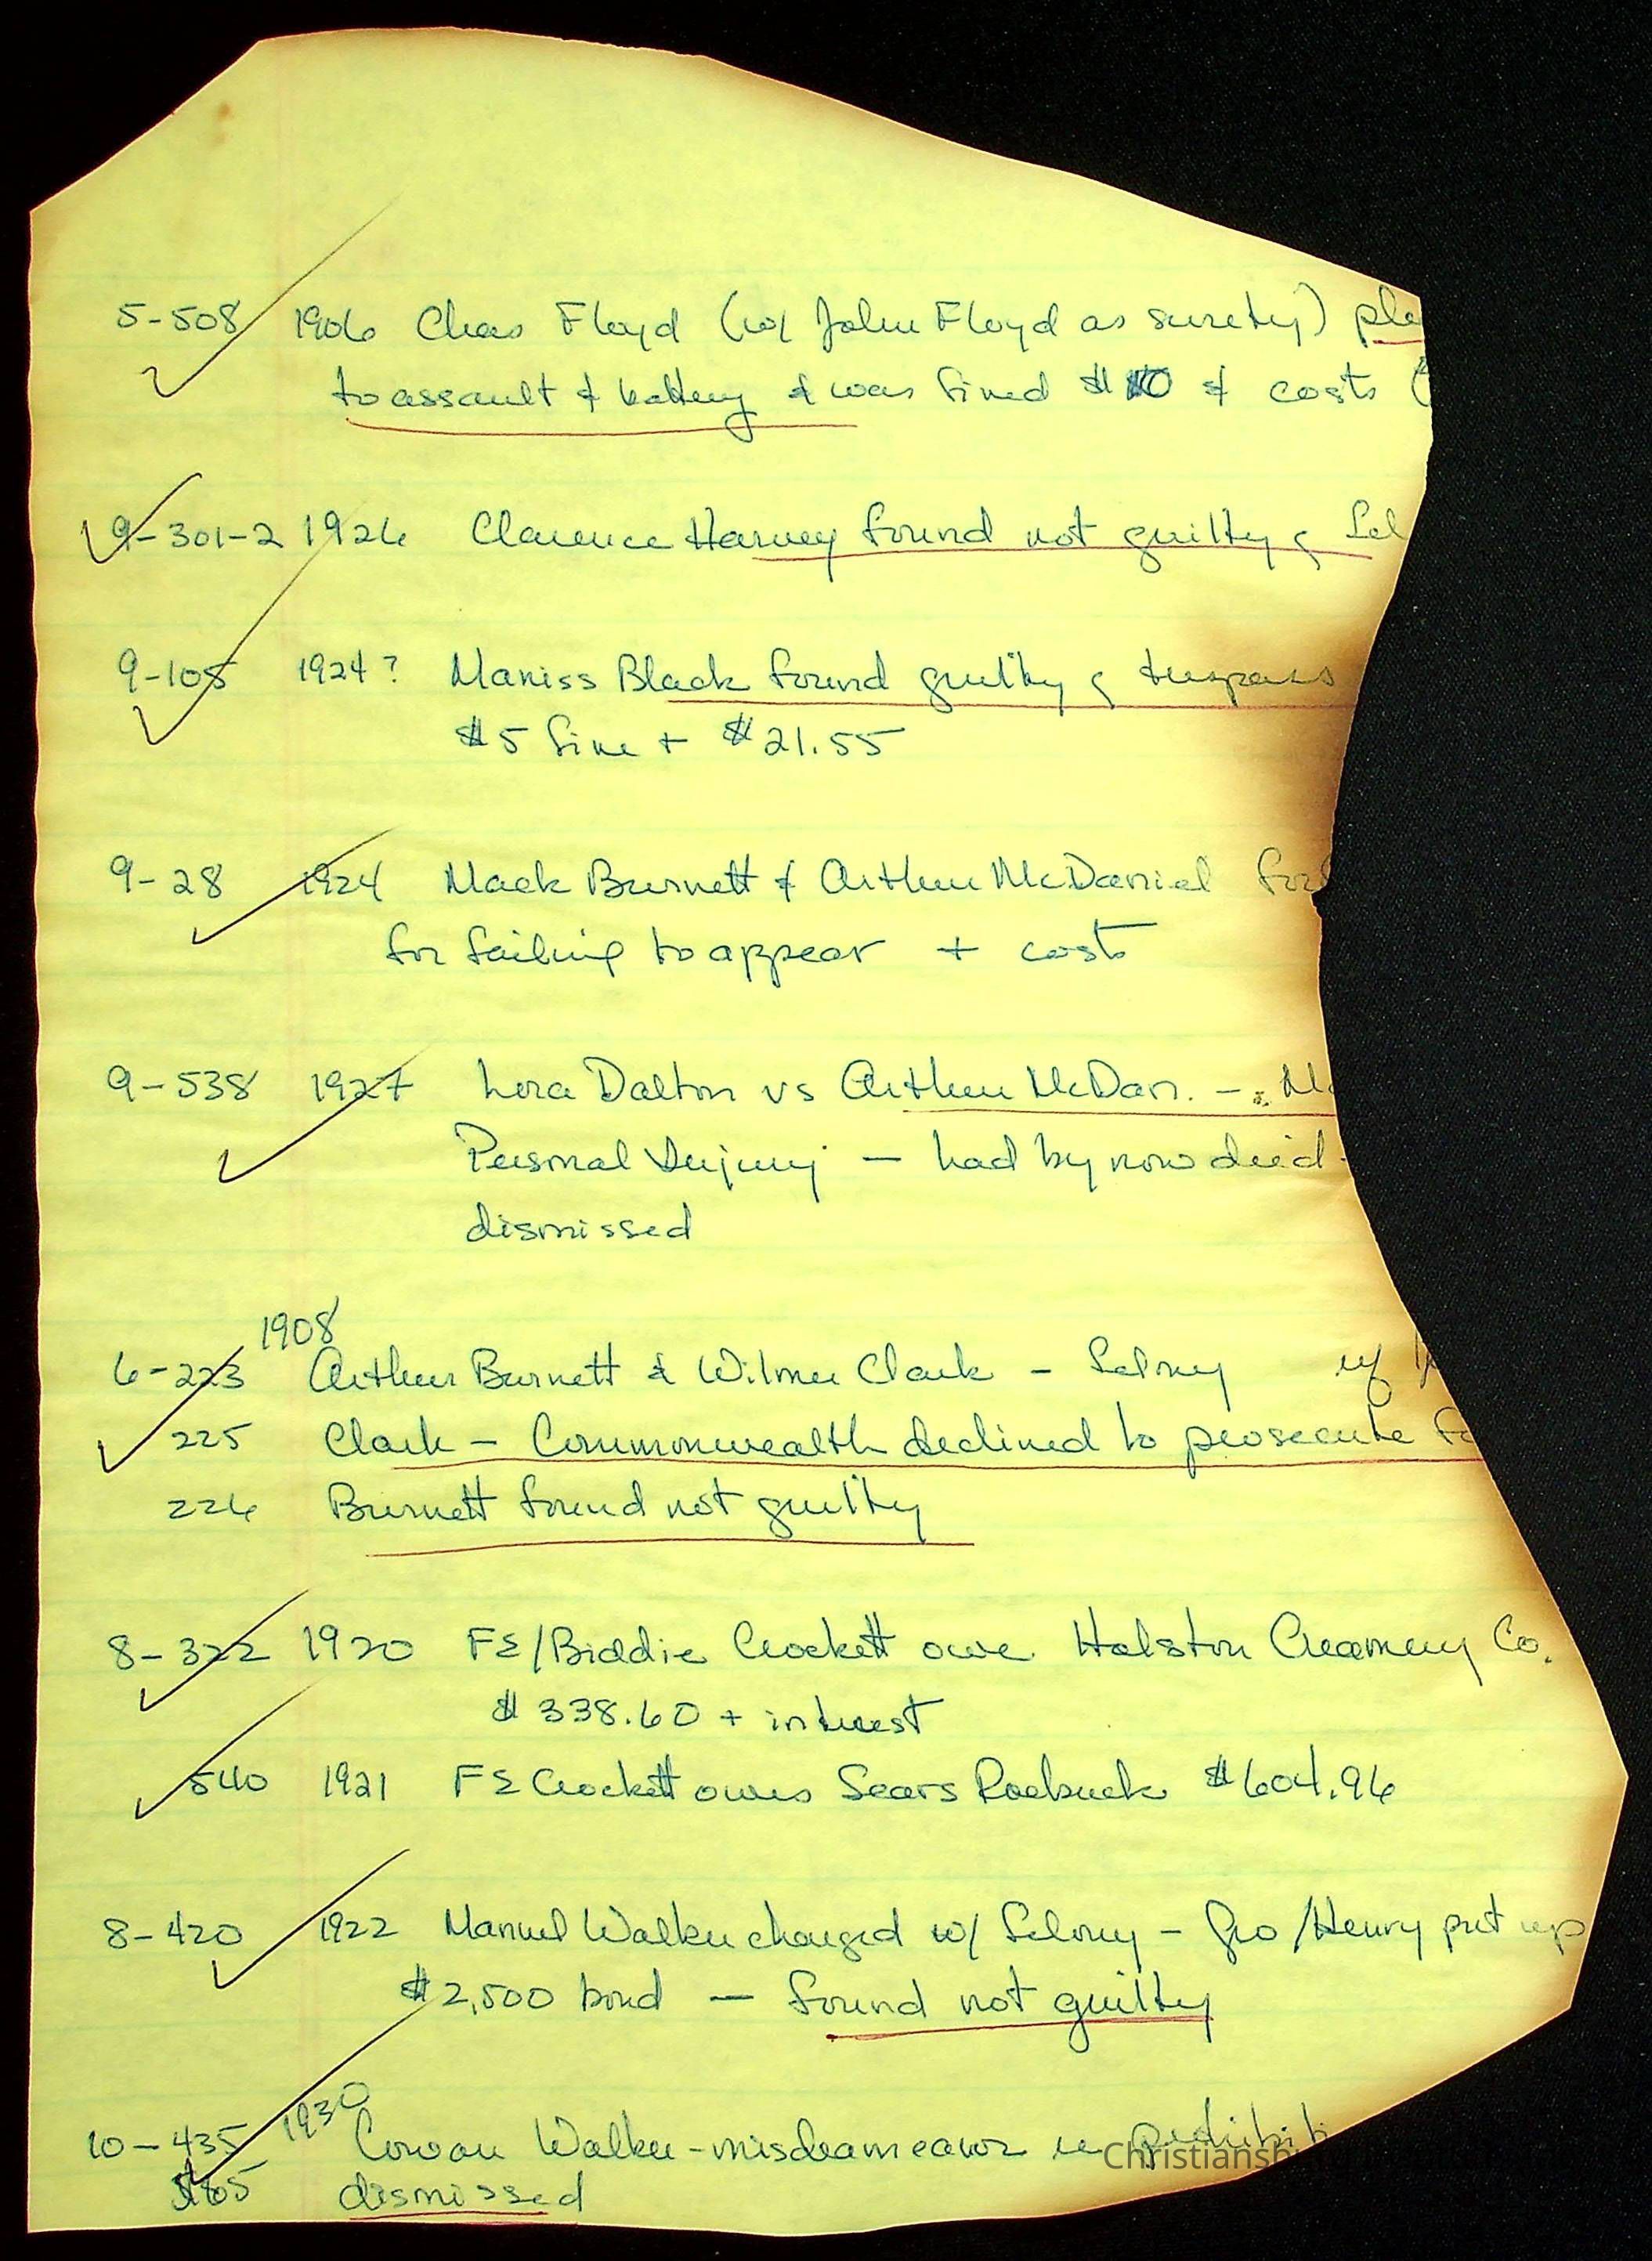 5-508 1906 Chas Floyd (w/ John Floyd as surety) ple
to assault & battery & was fined $10 & costs (
9-301-2 1926 Clarence Harvey found not guilty of fel
9-105 1924? Maniss Black found guilty of trespass
$5 fine + $21.55
9-28 1924 Mack Burnett & Arthur McDaniel for
for failing to appear + costs
9-538 1927 Lora Dalton vs Arthur McDan. -
Personal Injury — had by now died -
dismissed
1908
6-223 Arthur Burnett & Wilmer Clark - felony
225 Clark - Commonwealth declined to prosecute
226 Burnett found not guilty
8-322 1920 FE/Biddie Crockett owe Holston Creamery Co.
$338.60 + interest
540 1921 FE Crockett owes Sears Roebuck $604.96
8-420 1922 Manuel Walker charged w/ felony - Geo/Henry put up
$2,500 bond — found not guilty
1930
10-435 Cowan Walker - misdeameavor re prohibit
dismissed
Christiansb